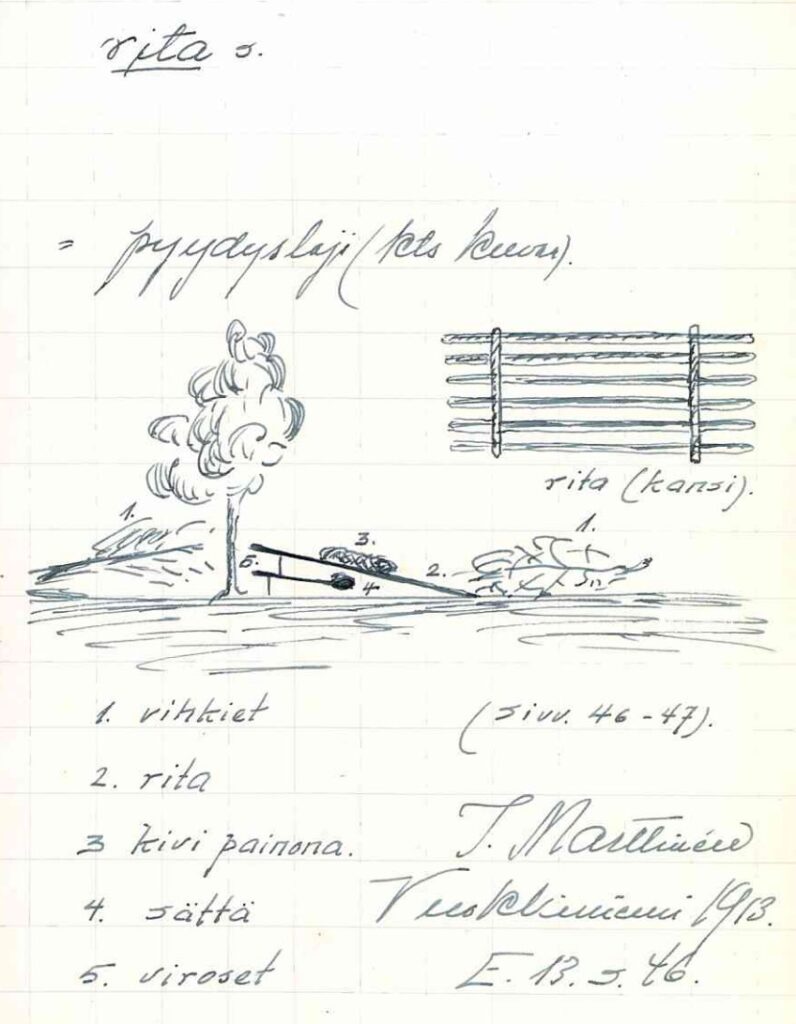 rita s.
= pyydyslaji (kts kuvan).
rita (kansi).
1.
1.
3.
5.
4
2.
1. vihkiet
(sivv. 46-47).
2. rita
3 kivi painona.
I. Marttinen
4. sättä
Vuokkiniemi 1913.
5. viroset
E. 13. s. 46.